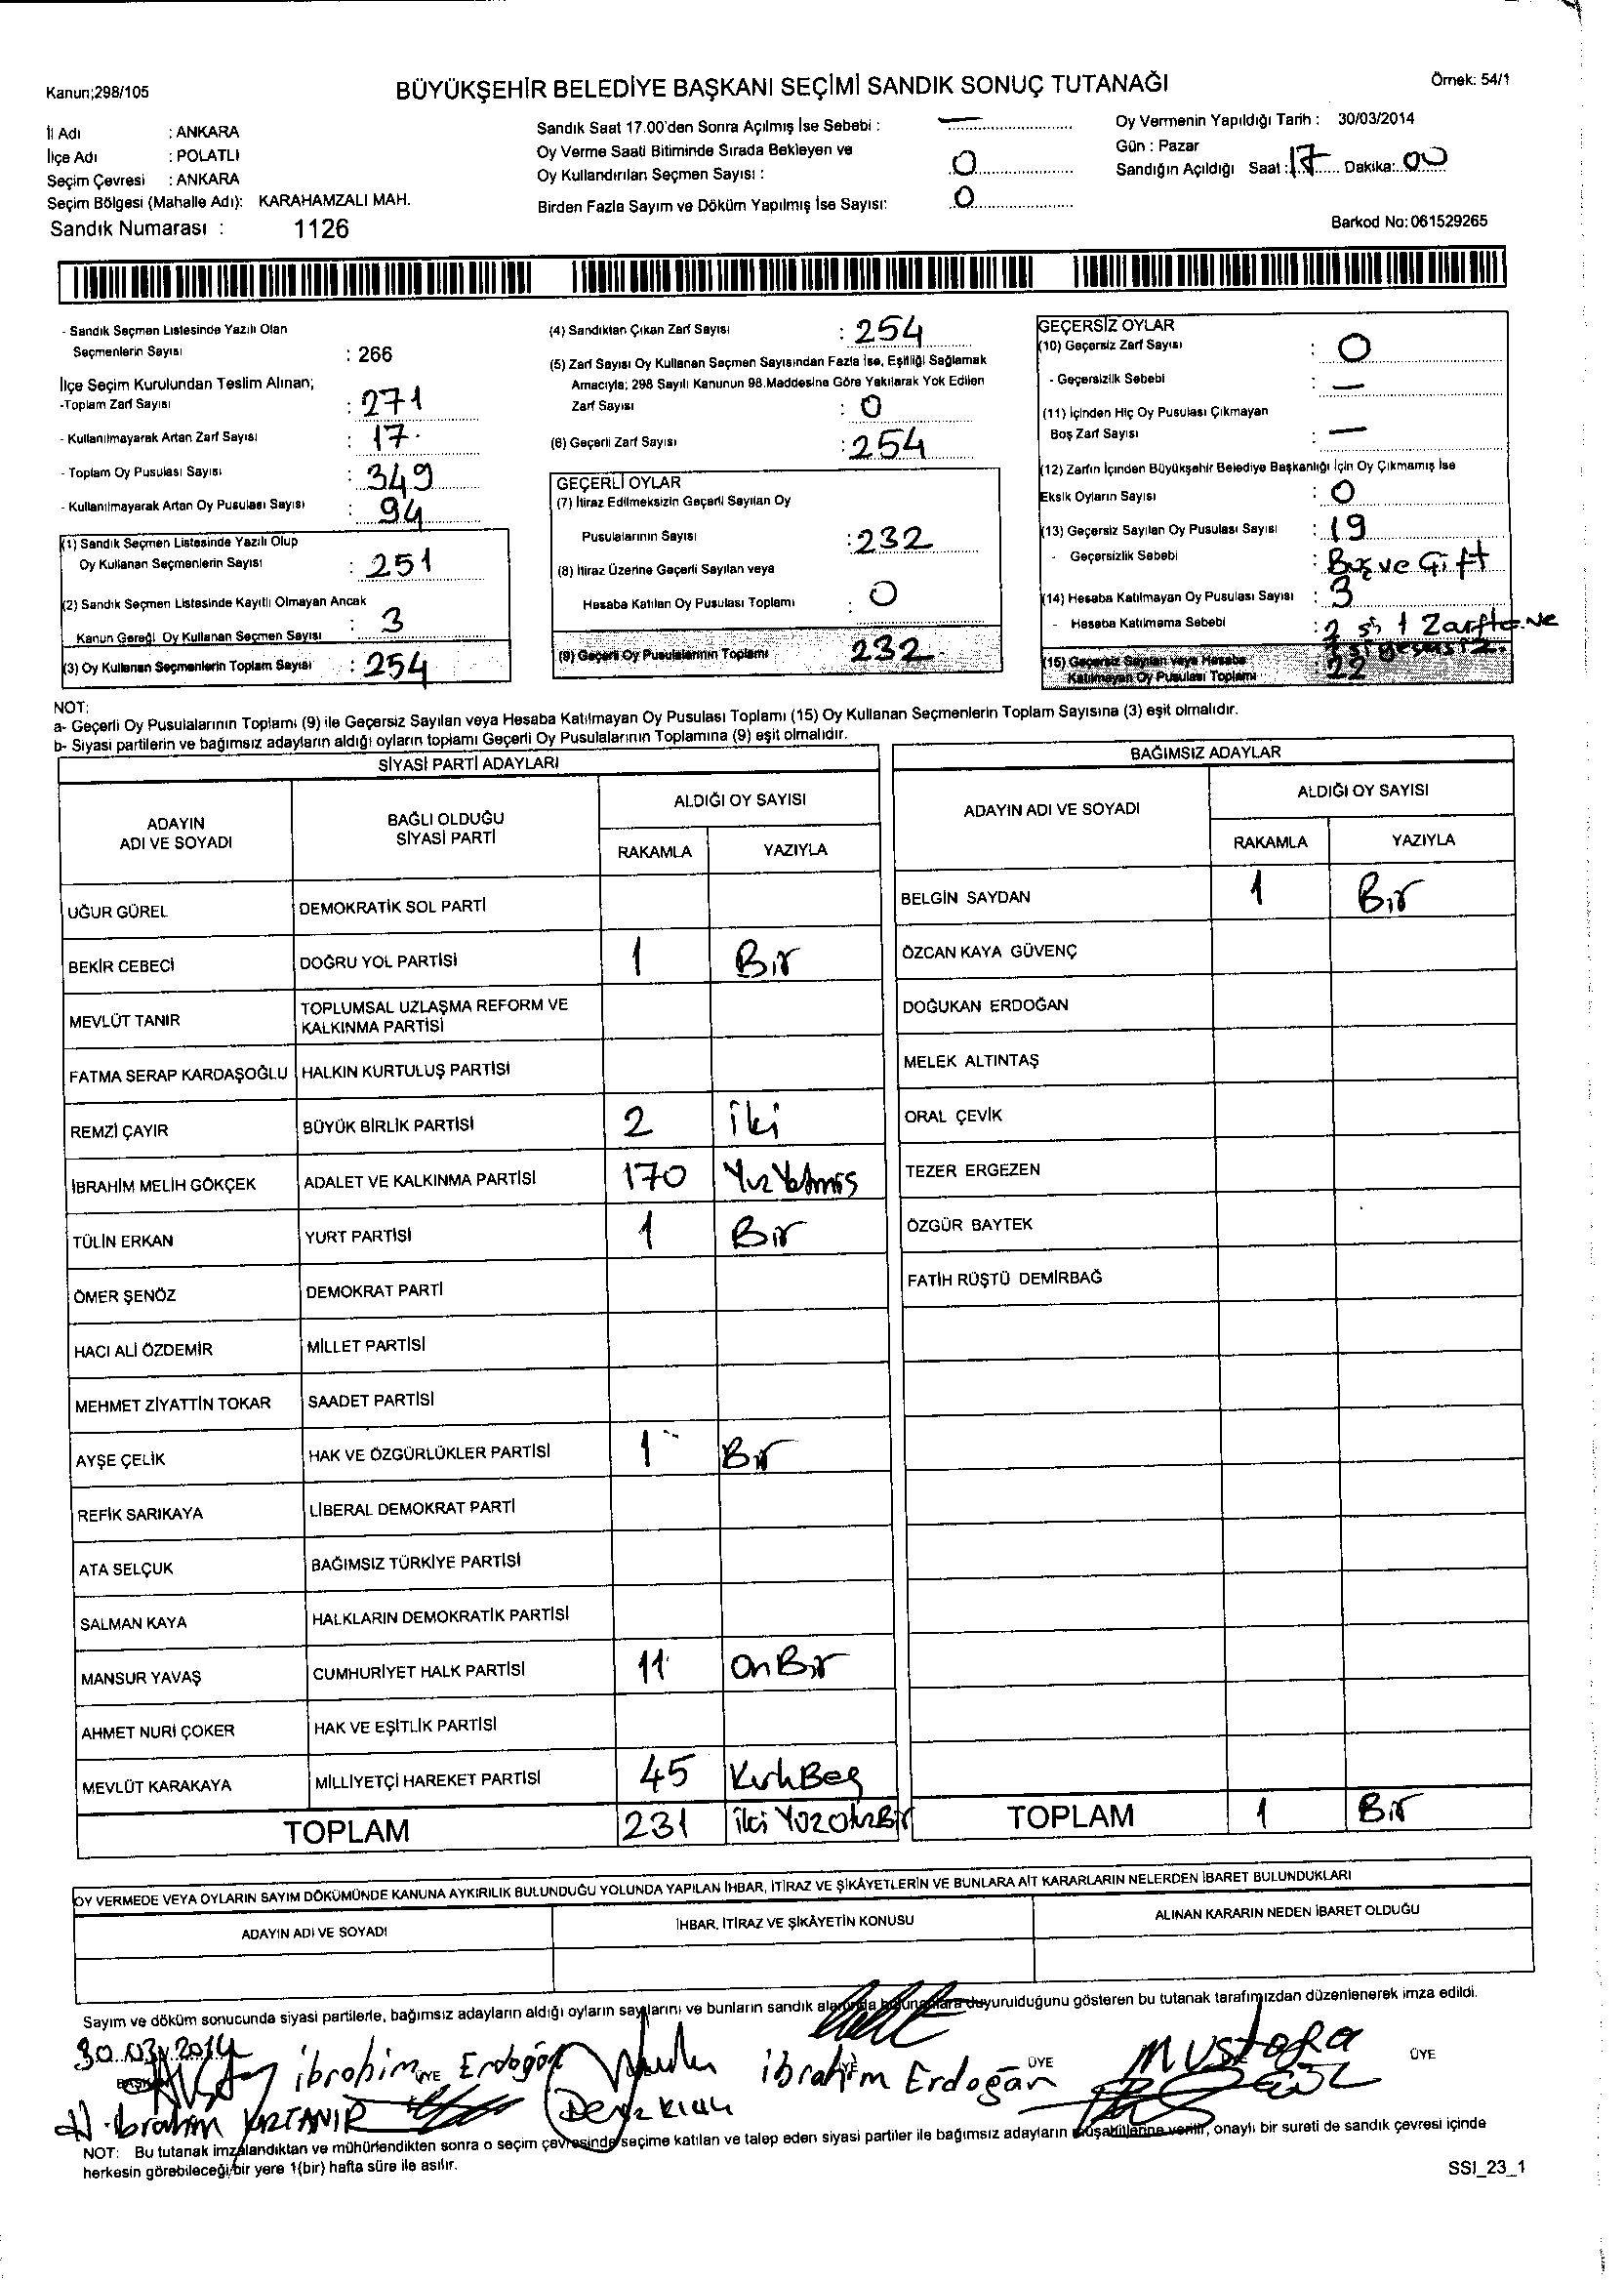 Kanun;298/105
BÜYÜKŞEHİR BELEDİYE BAŞKANI SEÇİMİ SANDIK SONUÇ TUTANAĞI
Örnek: 54/1
İl Adı : ANKARA
İlçe Adı : POLATLI
Seçim Çevresi : ANKARA
Seçim Bölgesi (Mahalle Adı): KARAHAMZALI MAH.
Sandık Numarası : 1126
Sandık Saat 17.00'den Sonra Açılmış İse Sebebi : —
Oy Verme Saati Bitiminde Sırada Bekleyen ve
Oy Kullandırılan Seçmen Sayısı : 0
Birden Fazla Sayım ve Döküm Yapılmış İse Sayısı: 0
Oy Vermenin Yapıldığı Tarih : 30/03/2014
Gün : Pazar
Sandığın Açıldığı Saat : 17 Dakika: 00
Barkod No: 061529265
- Sandık Seçmen Listesinde Yazılı Olan
Seçmenlerin Sayısı : 266
İlçe Seçim Kurulundan Teslim Alınan;
-Toplam Zarf Sayısı : 271
- Kullanılmayarak Artan Zarf Sayısı : 17
- Toplam Oy Pusulası Sayısı : 349
- Kullanılmayarak Artan Oy Pusulası Sayısı : 94
(1) Sandık Seçmen Listesinde Yazılı Olup
Oy Kullanan Seçmenlerin Sayısı : 251
(2) Sandık Seçmen Listesinde Kayıtlı Olmayan Ancak
Kanun Gereği Oy Kullanan Seçmen Sayısı : 3
(3) Oy Kullanan Seçmenlerin Toplam Sayısı : 254
(4) Sandıktan Çıkan Zarf Sayısı : 254
(5) Zarf Sayısı Oy Kullanan Seçmen Sayısından Fazla İse, Eşitliği Sağlamak
Amacıyla; 298 Sayılı Kanunun 98.Maddesine Göre Yakılarak Yok Edilen
Zarf Sayısı : 0
(6) Geçerli Zarf Sayısı : 254
GEÇERLİ OYLAR
(7) İtiraz Edilmeksizin Geçerli Sayılan Oy
Pusulalarının Sayısı : 232
(8) İtiraz Üzerine Geçerli Sayılan veya
Hesaba Katılan Oy Pusulası Toplamı : 0
(9) Geçerli Oy Pusulalarının Toplamı 232
GEÇERSİZ OYLAR
(10) Geçersiz Zarf Sayısı : 0
- Geçersizlik Sebebi : —
(11) İçinden Hiç Oy Pusulası Çıkmayan
Boş Zarf Sayısı : —
(12) Zarfın İçinden Büyükşehir Belediye Başkanlığı İçin Oy Çıkmamış İse
Eksik Oyların Sayısı : 0
(13) Geçersiz Sayılan Oy Pusulası Sayısı : 19
- Geçersizlik Sebebi : Boş ve Çift
(14) Hesaba Katılmayan Oy Pusulası Sayısı : 3
- Hesaba Katılmama Sebebi : 2 si 1 Zarfta ve
(15) Geçersiz Sayılan veya Hesaba
Katılmayan Oy Pusulası Toplamı 22
NOT:
a- Geçerli Oy Pusulalarının Toplamı (9) ile Geçersiz Sayılan veya Hesaba Katılmayan Oy Pusulası Toplamı (15) Oy Kullanan Seçmenlerin Toplam Sayısına (3) eşit olmalıdır.
b- Siyasi partilerin ve bağımsız adayların aldığı oyların toplamı Geçerli Oy Pusulalarının Toplamına (9) eşit olmalıdır.
SİYASİ PARTİ ADAYLARI
ADAYIN ADI VE SOYADI BAĞLI OLDUĞU SİYASİ PARTİ ALDIĞI OY SAYISI
RAKAMLA YAZIYLA
UĞUR GÜREL DEMOKRATİK SOL PARTİ
BEKİR CEBECİ DOĞRU YOL PARTİSİ 1 Bir
MEVLÜT TANIR TOPLUMSAL UZLAŞMA REFORM VE KALKINMA PARTİSİ
FATMA SERAP KARDAŞOĞLU HALKIN KURTULUŞ PARTİSİ
REMZİ ÇAYIR BÜYÜK BİRLİK PARTİSİ 2 İki
İBRAHİM MELİH GÖKÇEK ADALET VE KALKINMA PARTİSİ 170 Yüz Yetmiş
TÜLİN ERKAN YURT PARTİSİ 1 Bir
ÖMER ŞENÖZ DEMOKRAT PARTİ
HACI ALİ ÖZDEMİR MİLLET PARTİSİ
MEHMET ZİYATTİN TOKAR SAADET PARTİSİ
AYŞE ÇELİK HAK VE ÖZGÜRLÜKLER PARTİSİ 1 Bir
REFİK SARIKAYA LİBERAL DEMOKRAT PARTİ
ATA SELÇUK BAĞIMSIZ TÜRKİYE PARTİSİ
SALMAN KAYA HALKLARIN DEMOKRATİK PARTİSİ
MANSUR YAVAŞ CUMHURİYET HALK PARTİSİ 11 On Bir
AHMET NURİ ÇOKER HAK VE EŞİTLİK PARTİSİ
MEVLÜT KARAKAYA MİLLİYETÇİ HAREKET PARTİSİ 45 Kırk Beş
TOPLAM 231 İki Yüz Otuz Bir
BAĞIMSIZ ADAYLAR
ADAYIN ADI VE SOYADI ALDIĞI OY SAYISI
RAKAMLA YAZIYLA
BELGİN SAYDAN 1 Bir
ÖZCAN KAYA GÜVENÇ
DOĞUKAN ERDOĞAN
MELEK ALTINTAŞ
ORAL ÇEVİK
TEZER ERGEZEN
ÖZGÜR BAYTEK
FATİH RÜŞTÜ DEMİRBAĞ
TOPLAM 1 Bir
OY VERMEDE VEYA OYLARIN SAYIM DÖKÜMÜNDE KANUNA AYKIRILIK BULUNDUĞU YOLUNDA YAPILAN İHBAR, İTİRAZ VE ŞİKÂYETLERİN VE BUNLARA AİT KARARLARIN NELERDEN İBARET BULUNDUKLARI
ADAYIN ADI VE SOYADI İHBAR, İTİRAZ VE ŞİKÂYETİN KONUSU ALINAN KARARIN NEDEN İBARET OLDUĞU
Sayım ve döküm sonucunda siyasi partilerle, bağımsız adayların aldığı oyların sayılarını ve bunların sandık alanında bulunanlara duyurulduğunu gösteren bu tutanak tarafımızdan düzenlenerek imza edildi.
30.03.2014
ibrahim Erdoğan ibrahim Erdoğan Mustafa
ÜYE ÜYE ÜYE
H. ibrahim YAZTANIR Deniz
NOT: Bu tutanak imzalandıktan ve mühürlendikten sonra o seçim çevresinde seçime katılan ve talep eden siyasi partiler ile bağımsız adayların müşahitlerine verilir, onaylı bir sureti de sandık çevresi içinde
herkesin görebileceği bir yere 1(bir) hafta süre ile asılır.
SSI_23_1